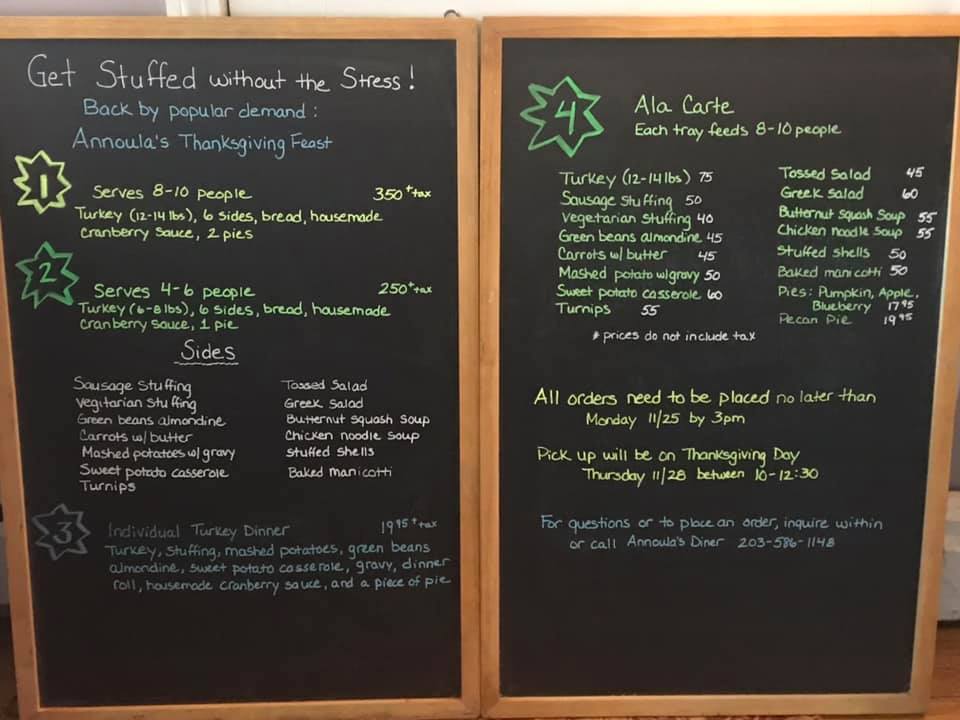 Get Stuffed without the Stress!
Back by popular demand:
Annoula's Thanksgiving Feast
1
Serves 8-10 people 350 + tax
Turkey (12-14 lbs), 6 sides, bread, housemade
cranberry sauce, 2 pies
2
Serves 4-6 people 250 + tax
Turkey (6-8 lbs), 6 sides, bread, housemade
cranberry sauce, 1 pie
Sides
Sausage Stuffing
Vegitarian Stuffing
Green beans almondine
Carrots w/ butter
Mashed potatoes w/ gravy
Sweet potato casserole
Turnips
Tossed Salad
Greek Salad
Butternut Squash Soup
Chicken noodle Soup
Stuffed shells
Baked manicotti
3
Individual Turkey Dinner 19 95 + tax
Turkey, stuffing, mashed potatoes, green beans
almondine, sweet potato casserole, gravy, dinner
roll, housemade cranberry sauce, and a piece of pie
4
Ala Carte
Each tray feeds 8-10 people
Turkey (12-14 lbs) 75
Sausage Stuffing 50
Vegetarian Stuffing 40
Green beans almondine 45
Carrots w/ butter 45
Mashed potato w/ gravy 50
Sweet potato casserole 60
Turnips 55
Tossed Salad 45
Greek Salad 60
Butternut Squash Soup 55
Chicken noodle Soup 55
Stuffed shells 50
Baked manicotti 50
Pies: Pumpkin, Apple,
Blueberry 17 95
Pecan Pie 19 95
* prices do not include tax
All orders need to be placed no later than
Monday 11/25 by 3pm
Pick up will be on Thanksgiving Day
Thursday 11/28 between 10-12:30
For questions or to place an order, inquire within
or call Annoula's Diner 203-586-1148